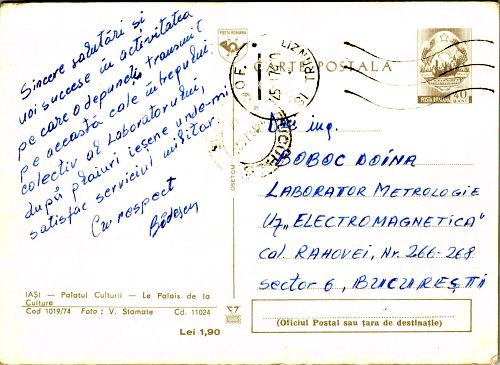 Sincere salutări și
noi succese în activitatea
pe care o depuneți, transmit
pe această cale întregului
colectiv al Laboratorului,
după plaiuri ieșene unde-mi
satisfac serviciul militar.
Cu respect
POSTA ROMANA
CARTE POSTALA
POSTA ROMANA
40
ing.
BOBOC DOINA
LABORATOR METROLOGIE
Uz „ELECTROMAGNETICA"
cal. RAHOVEI, Nr. 266-268
sector 6, BUCUREȘTI
IAȘI — Palatul Culturii — Le Palais de la
Culture
Cod 1019/74 Foto : V. Stamate Cd. 11024
Lei 1,90
(Oficiul Postal sau țara de destinație)